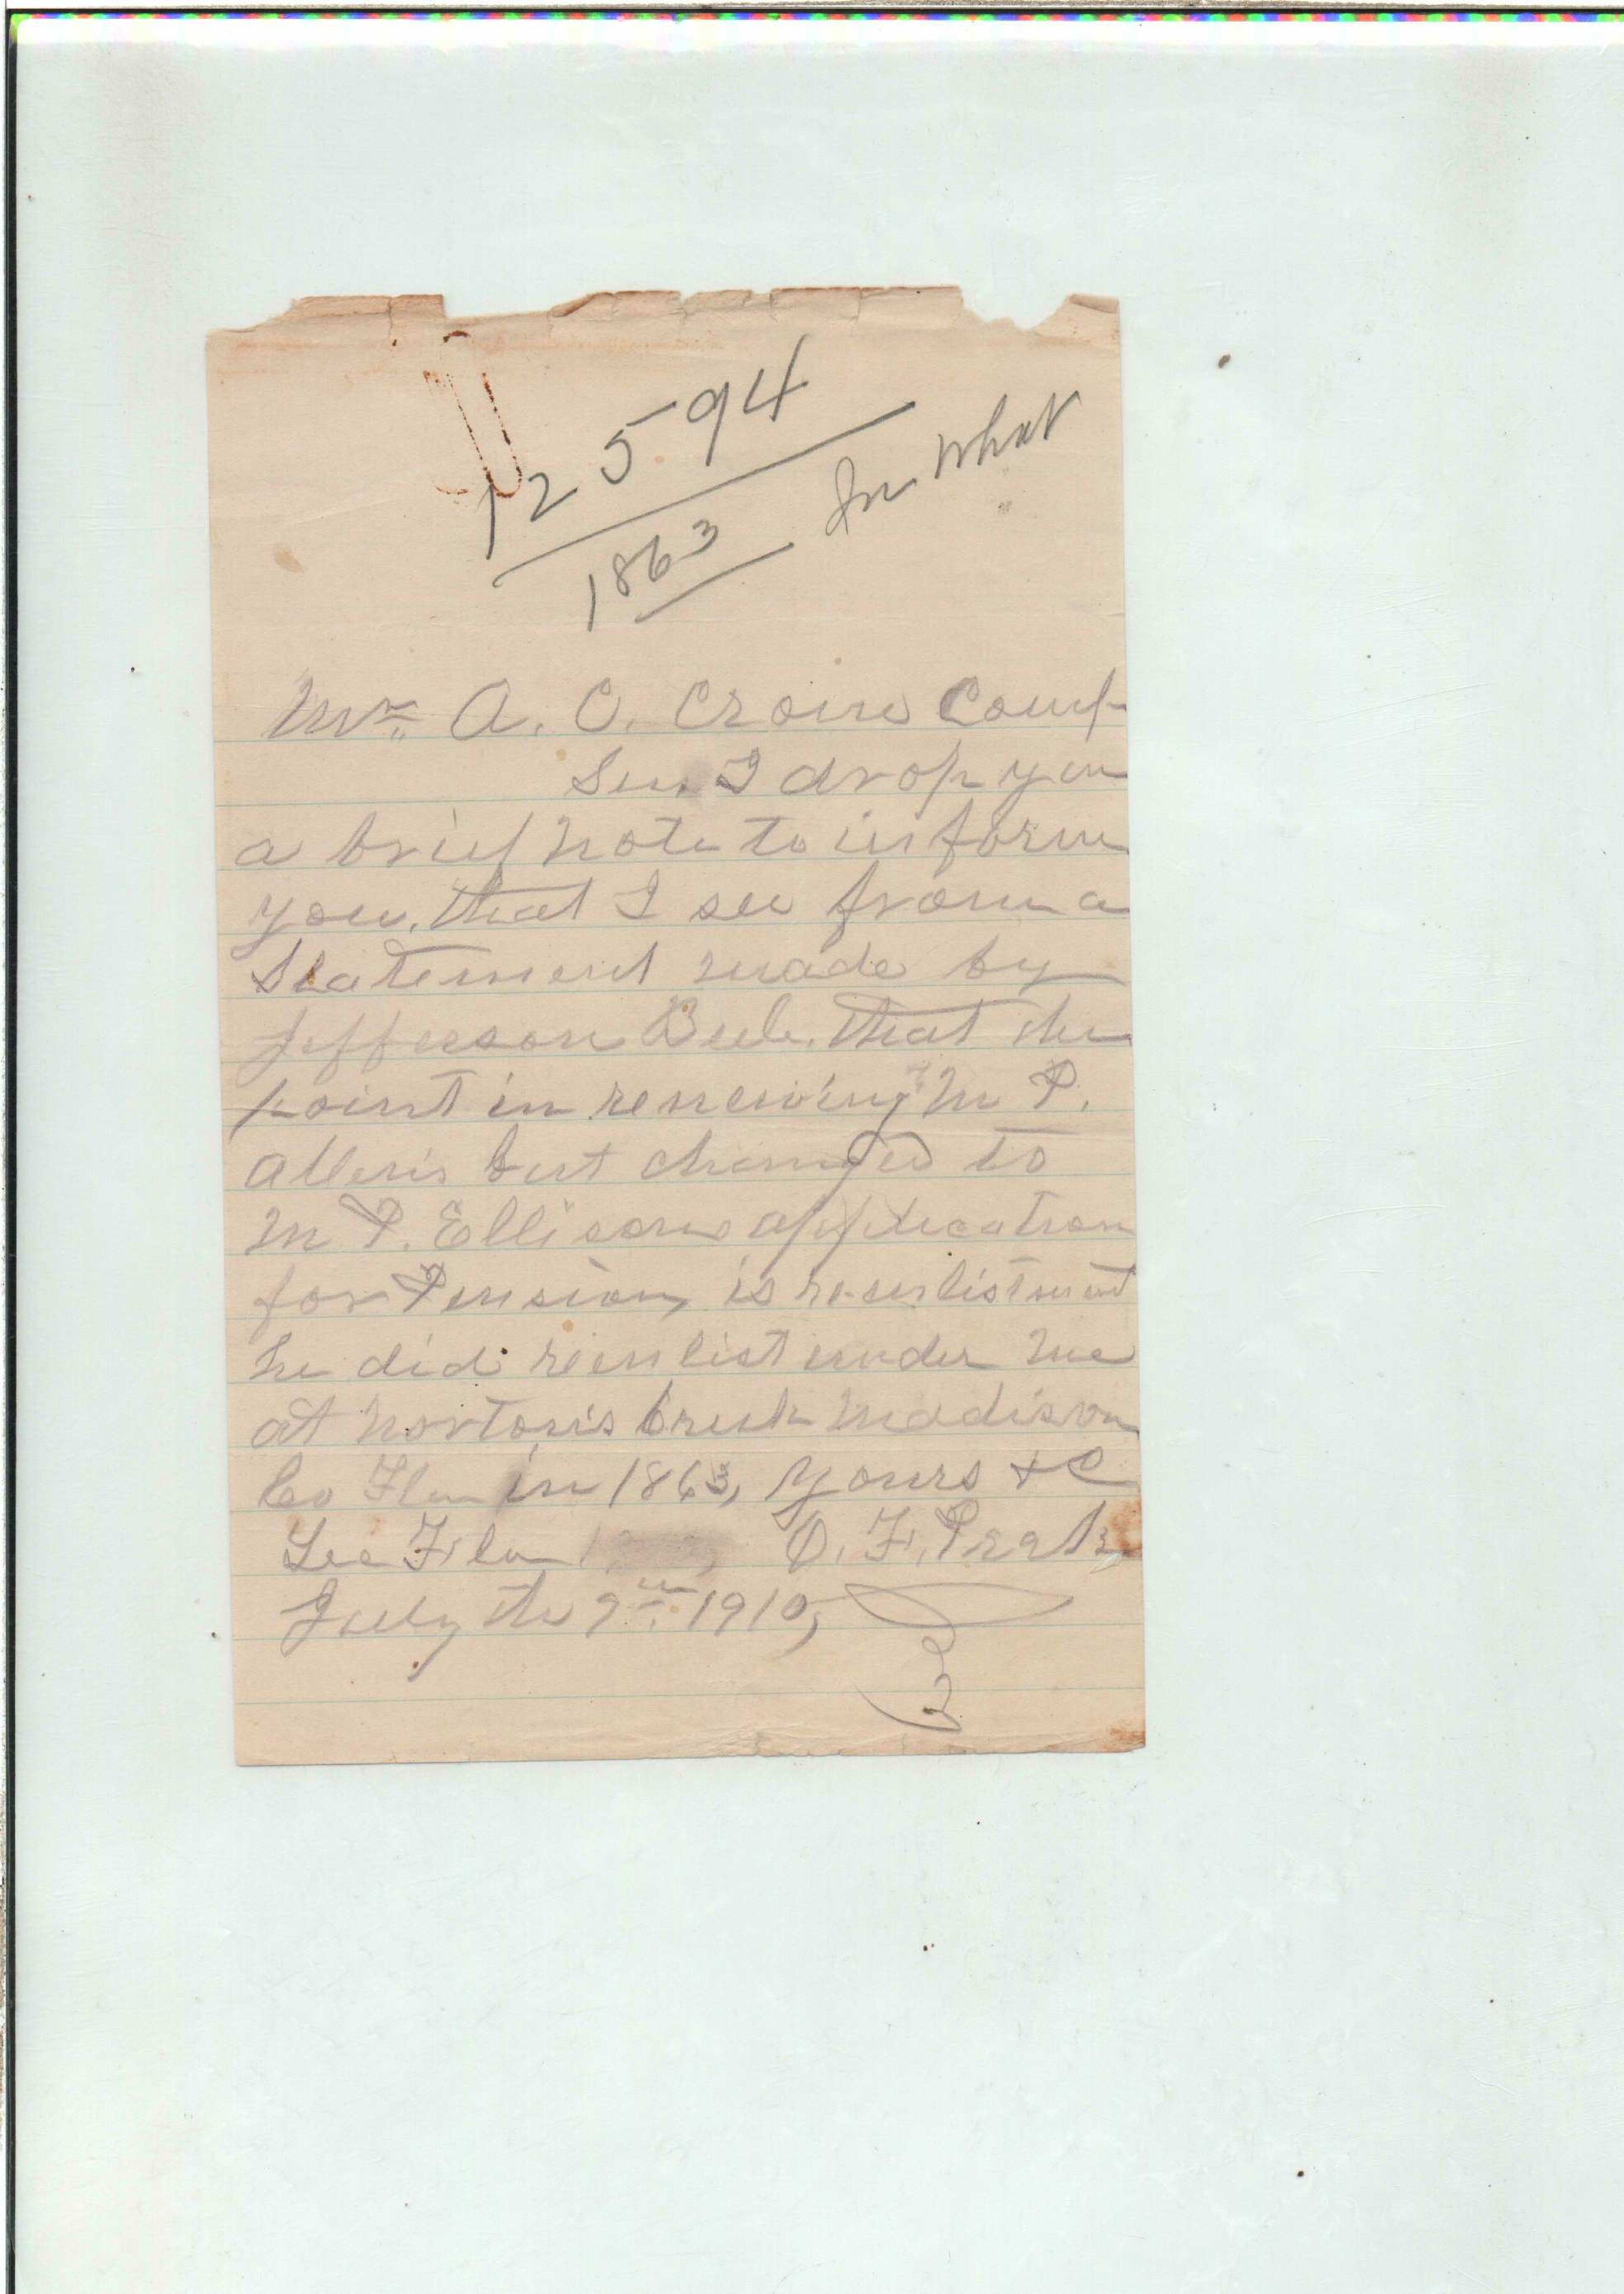 12594
1863 In what
Mr. A. C. Croom Comp
Sir. I drop you
a brief note to inform
you. that I see from a
Statement made by
Jefferson that the
point in renewing M P.
but changed to
M P. Ellison application
for Pension, is reenlistment
he did reenlist under me
at Norton's Creek Madison
Co Fla in 1863, Yours & C
Lee Fla O. F.
July the 1910,